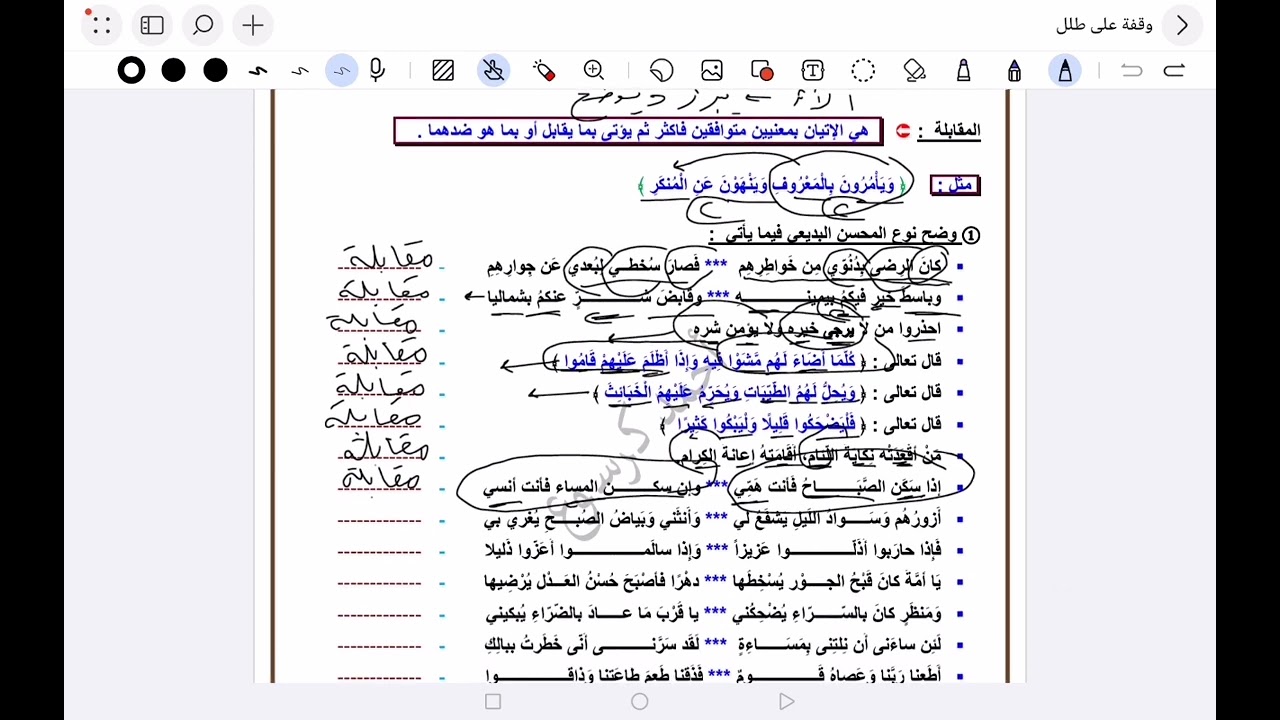 وقفة على طلل
الأثر ← يبرز ويوضح
المقابلة : هي الإتيان بمعنيين متوافقين فأكثر ثم يؤتى بما يقابل أو بما هو ضدهما .
مثل : ﴿ وَيَأْمُرُونَ بِالْمَعْرُوفِ وَيَنْهَوْنَ عَنِ الْمُنكَرِ ﴾
① وضح نوع المحسن البديعي فيما يأتي :
كانَ الرِضى بِدُنُوّي مِن خَواطِرِهِم *** فَصارَ سُخطـي لِبُعدي عَن جِوارِهِمِ - مقابلة
وباسطُ خيرٍ فيكمُ بِيمينـــــــهِ *** وقابضُ شـــــــرٍ عنكمُ بشماليا - مقابلة
احذروا من لا يرجى خيره ولا يؤمن شره - مقابلة
قال تعالى : ﴿ كُلَّمَا أَضَاءَ لَهُم مَّشَوْا فِيهِ وَإِذَا أَظْلَمَ عَلَيْهِمْ قَامُوا ﴾ - مقابلة
قال تعالى : ﴿ وَيُحِلُّ لَهُمُ الطَّيِّبَاتِ وَيُحَرِّمُ عَلَيْهِمُ الْخَبَائِثَ ﴾ - مقابلة
قال تعالى : ﴿ فَلْيَضْحَكُوا قَلِيلًا وَلْيَبْكُوا كَثِيرًا ﴾ - مقابلة
مَنْ أقْعَدَتْه نِكاية اللِّئام، أقَامَتهُ إعانة الكِرام - مقابلة
إِذا سَكَن الصَّبَـــــاحُ فَأنت هَمِّي *** وإن سكـــــن المساء فأنت أنسي - مقابلة
أَزورُهُم وَسَـــوادُ اللَيلِ يَشفَعُ لي *** وَأَنثَني وَبَياضُ الصُبـــحِ يُغري بي -
فَإِذا حارَبوا أَذَلّـــــوا عَزيزاً *** وَإِذا سالَمـــــوا أَعَزّوا ذَليلا -
يَا أمَّةً كانَ قُبْحُ الجــوْر يُسْخِطُها *** دهْرًا فأصْبَحَ حُسْنُ العَــدْل يُرْضِيها -
وَمَنظَرٍ كانَ بالسّـــرّاءِ يُضْحِكُني *** يا قُرْبَ مَا عـــادَ بالضّرّاءِ يُبكيني -
لَئِن ساءَني أَن نِلتِني بِمَسَـــاءةٍ *** لَقَد سَرَّنـــــي أَنّي خَطَرتُ بِبالِكِ -
أَطَعنا رَبَّنا وَعَصاهُ قَـــــومٌ *** فَذُقنا طَعمَ طاعَتِنا وَذاقـــــوا -